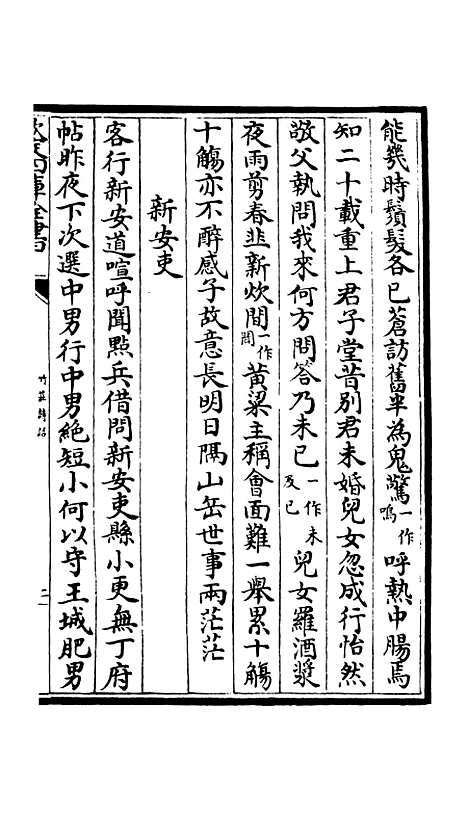 能幾時鬢髮各已蒼訪舊半為鬼驚一作嗚呼熱中腸焉
知二十載重上君子堂昔別君未婚兒女忽成行怡然
敬父執問我來何方問答乃未已一作未及已兒女羅酒漿
夜雨剪春韭新炊間一作聞黃粱主稱會面難一舉累十觴
十觴亦不醉感子故意長明日隔山岳世事兩茫茫
新安吏
客行新安道喧呼聞點兵借問新安吏縣小更無丁府
帖昨夜下次選中男行中男絶短小何以守王城肥男
欽定四庫全書
竹莊詩話
二